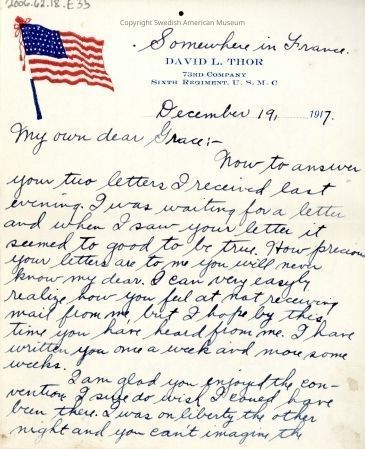 2006.62.18.E33
Copyright Swedish American Museum
Somewhere in France.
DAVID L. THOR
73RD COMPANY
SIXTH REGIMENT, U. S. M. C
December 19, 1917.
My own dear Grace:-
Now to answer
your two letters I received last
evening. I was waiting for a letter
and when I saw your letter it
seemed to good to be true. How precious
your letters are to me you will never
know my dear. I can very easyly
realize how you feel at not receiving
mail from me, but I hope by this
time you have heard from me. I have
written you once a week and more some
weeks.
I am glad you enjoyed the con-
vention. I sure do wish I could have
been there. I was on liberty the other
night and you can't imagine the